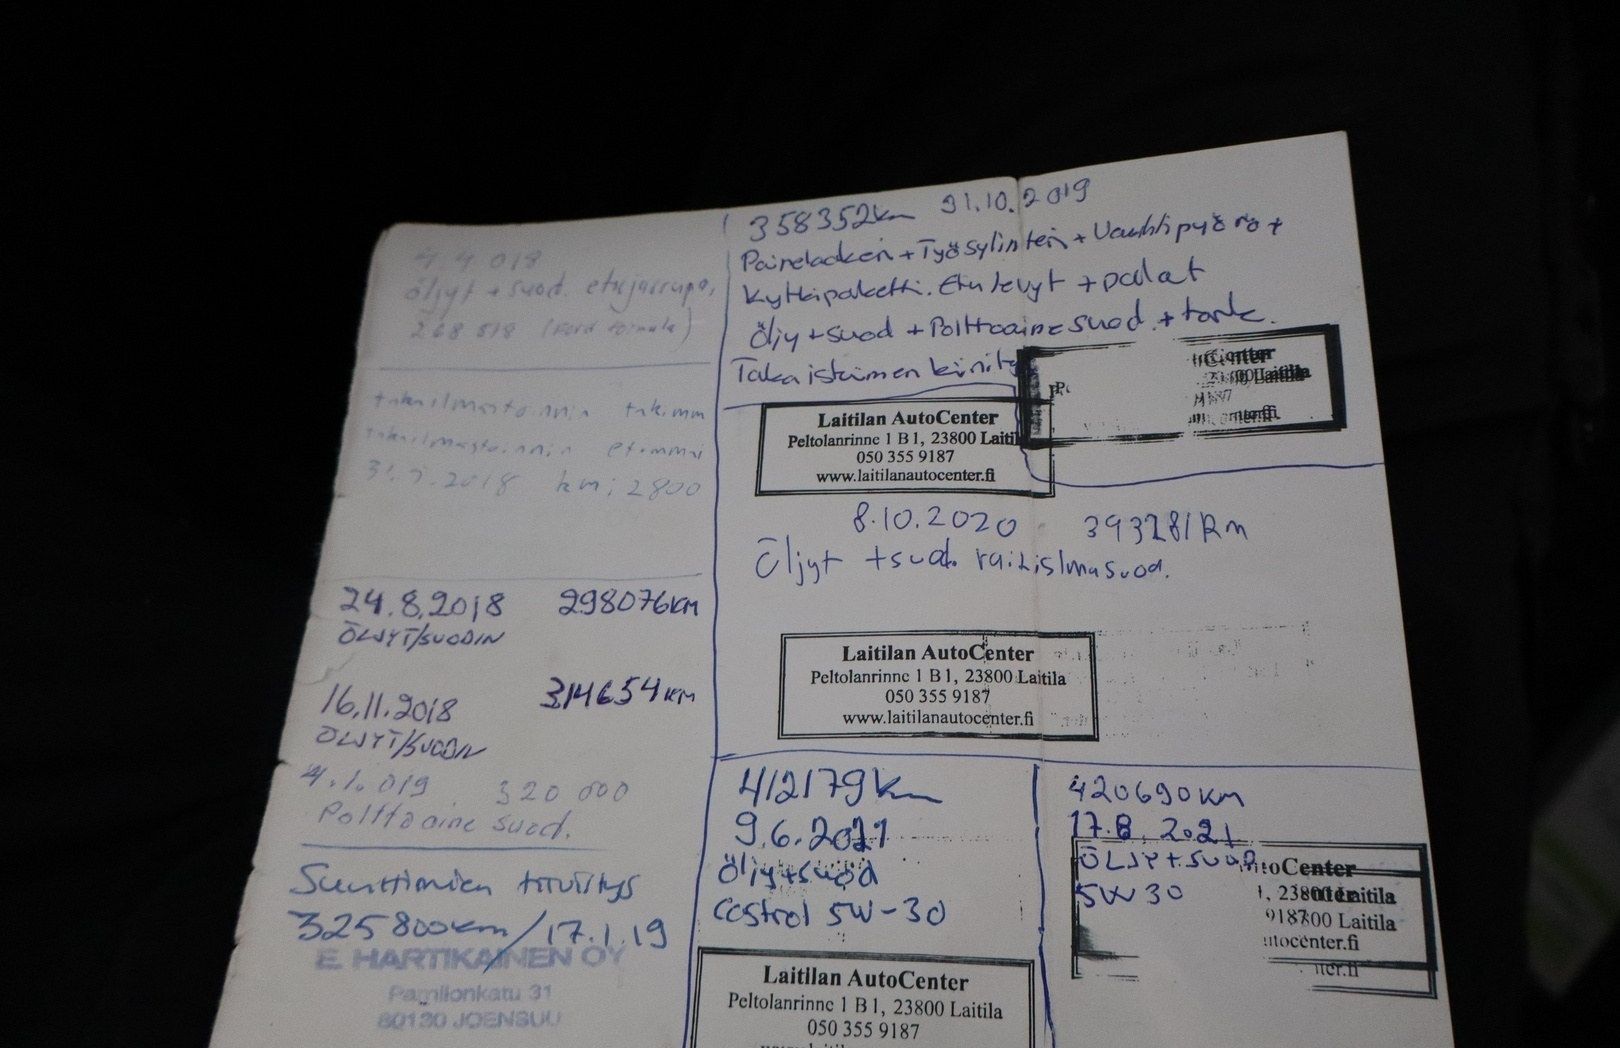 4 4 018
öljyt + suod. etujarrupa,
268 818 (Ford
takailmastoinnin takimm
takailmastoinnin etummai
2018 km: 2800
24.8.2018 298076KM
ÖLJYT/SUODIN
16.11.2018 314654KM
ÖLJYT/SUODIN
4.1.019. 320 000
Polttoaine suod.
Suuttimien tiivistys
325800km/17.1.19
E. HARTIKAINEN OY
Pamilonkatu 31
80130 JOENSUU
358352km 31.10.2019
Painelaakeri + Työsylinteri + Vauhtipyörä +
Kytkinpaketti. Etu levyt + palat
Öljy + suod + Polttoaine suod. + tark.
Takaiskarin kiinitys
Center
Laitila
Laitilan AutoCenter
Peltolanrinne 1 B1, 23800 Laitil
050 355 9187
www.laitilanautocenter.fi
8.10.2020 393281km
Öljyt + suod. raitisilmasuod.
Laitilan AutoCenter
Peltolanrinne 1 B1, 23800 Laitila
050 355 9187
www.laitilanautocenter.fi
412179km
9.6.2021
Öljy+suod
Castrol 5W-30
Laitilan AutoCenter
Peltolanrinne 1 B1, 23800 Laitila
050 355 9187
420690KM
17.8.2021
ÖLJY+SUOD
5W30
utoCenter
23800 Laitila
9187
utocenter.fi